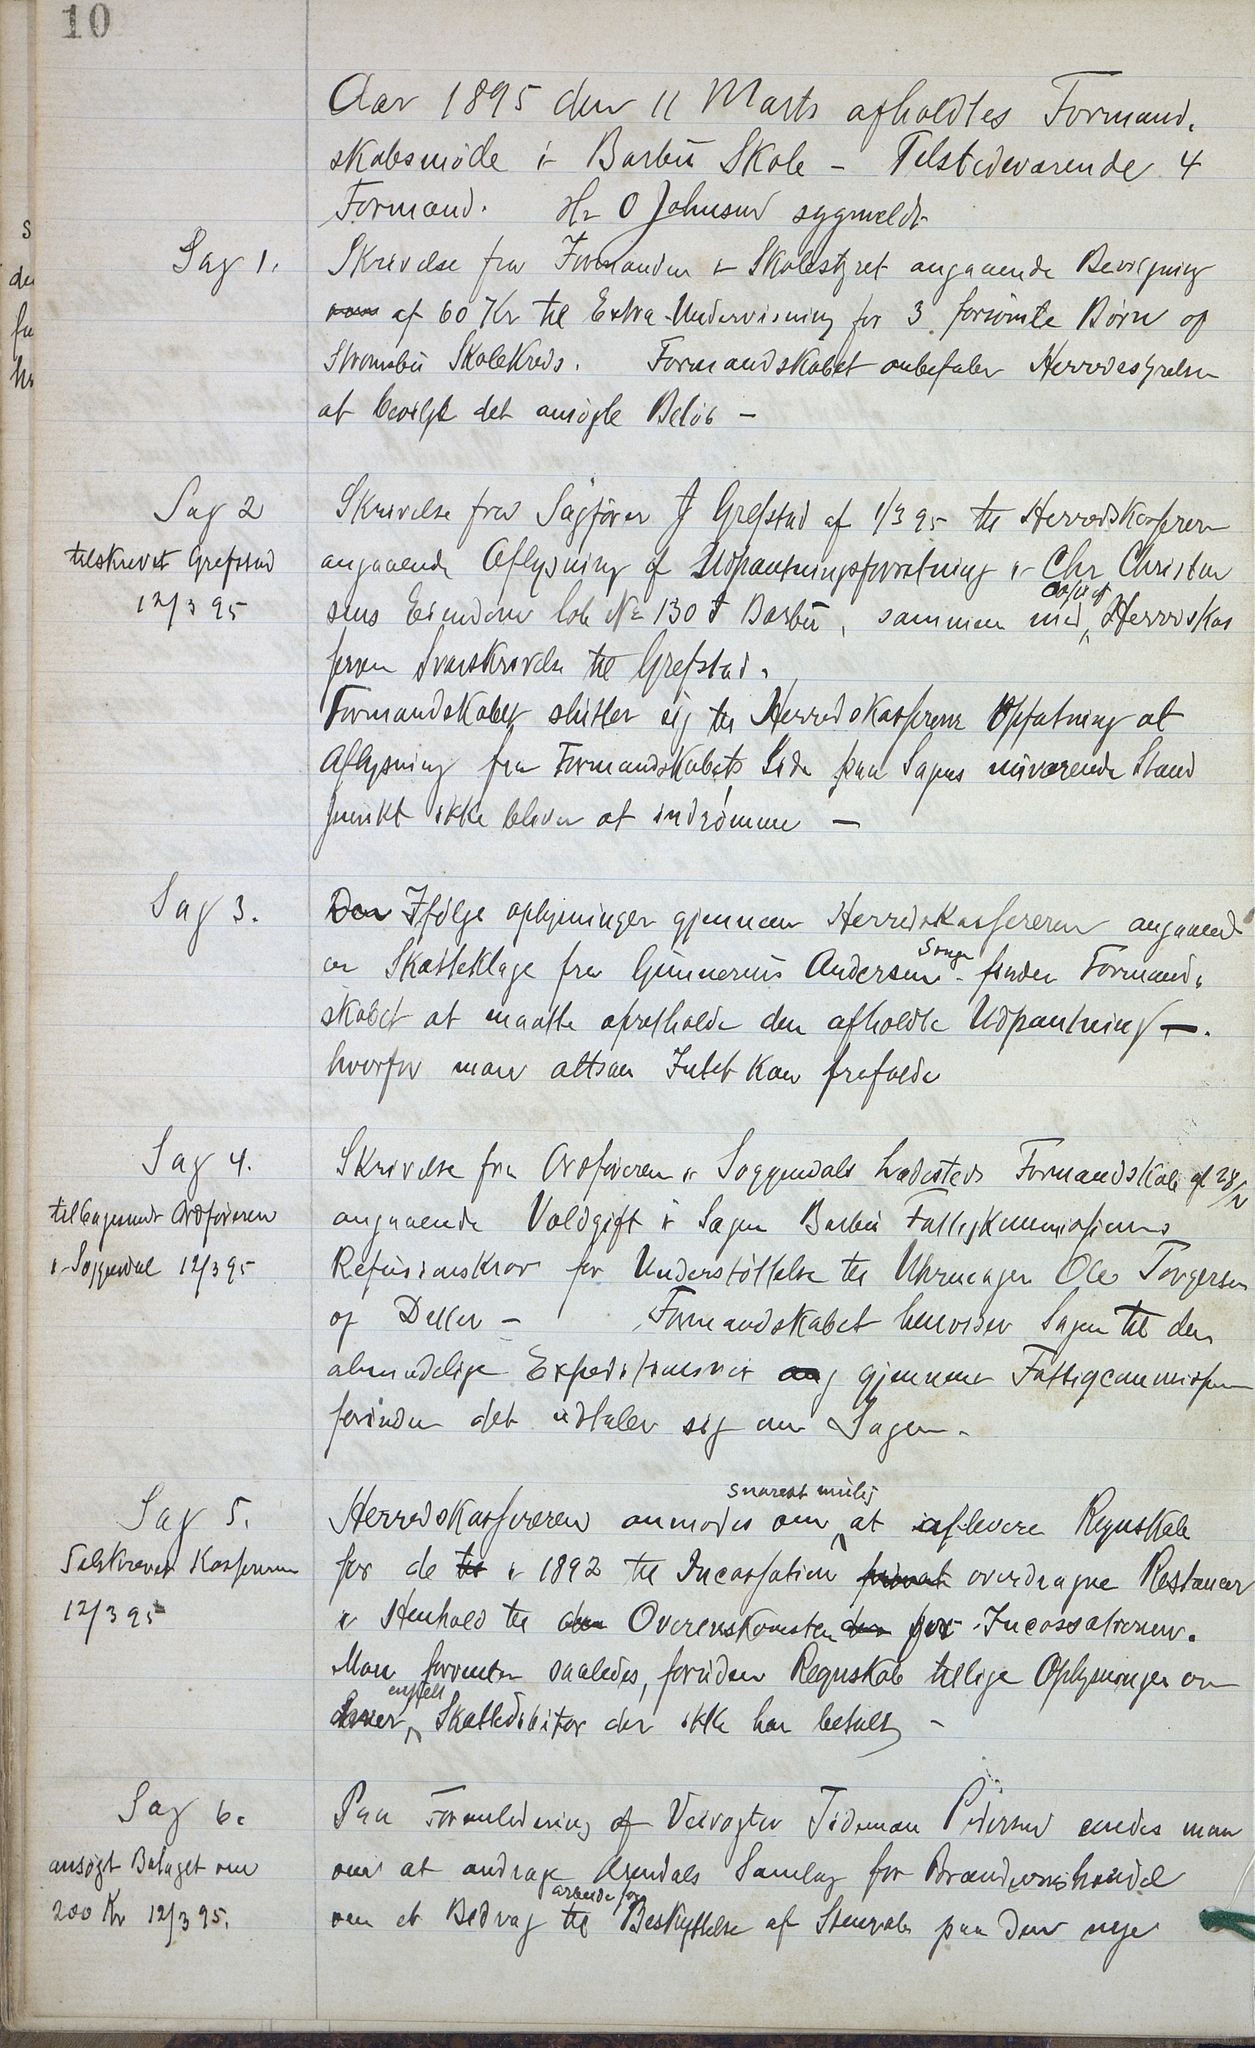 10
Aar 1895 den 11 Marts afholdtes Formand.
skabsmøde i Barbu Skole – Tilstedeværende 4
Formænd. Hr O Johnsen sygmeldt
Sag 1.
Skrivelse fra Formanden i Skolestyret angaaende Bevilgning
af 60 Kr til Extra Undervisning for 3 forsømte Børn op
Strømsbu Skolekreds. Formandskabet anbefaler Herredsstyrelsen
at bevilge det ansøgte Beløb –
Sag 2
tilskrevet Grefstad
12/3 95
Skrivelse fra Sagfører J Grefstad af 1/3 95 til Herredskasseren
angaaende Aflysning af Udpantningsforretning i Chr Christen
sens Eiendom lob No 130 I Barbu, sammen med Copi af Herredskas
seren Svarskrivelse til Grefstad.
Formandskabet slutter sig til Herredskasserens Opfatning at
Aflysning fra Formandskabets Side paa Sagens nuværende Stand
punkt ikke bliver at indrømme –
Sag 3.
Den Ifølge oplysninger gjennem Herredskassereren angaaende
en Skatteklage fra Gunnerius Andersen Songe – finder Formand.
skabet at maatte opretholde den afholdte Udpantning –.
hvorfor man altsaa Intet kan frafalde
Sag 4.
tilbagesendt Ordføreren
i Soggendal 12/3 95
Skrivelse fra Ordføreren i Soggendals Ladesteds Formandskab af 28/2
angaaende Voldgift i Sagen Barbu Fattigkommissions
Refusionskrav for Understøttelse til Uhrmager Ole Torgersen
og Datter – Formandskabet henviser Sagen til den
almindelige Expeditionsvei gjennem Fattigcommissionen
forinden det udtaler sig om Sagen.
Sag 5.
Tilskrevet Kassereren
12/3 95
Herredskassereren anmodes om snarest mulig at aflevere Regnskab
for de til i 1892 til Incassation privat overdragne Restancer
i Henhold til den Overenskomsten den for Incassationen.
Man forventer saaledes, foruden Regnskab tillige Oplysninger om
hver enkelt Skattedebitor der ikke har betalt –
Sag 6.
ansøgt Bolaget om
200 Kr 12/3 95.
Paa Formledning af Veivogter Tideman Pedersen enedes man
om at andrage Arendals Samlag for Brændevinshandel
om et Bidrag til arbeide for Beskyttelse af Stenvola paa den nye